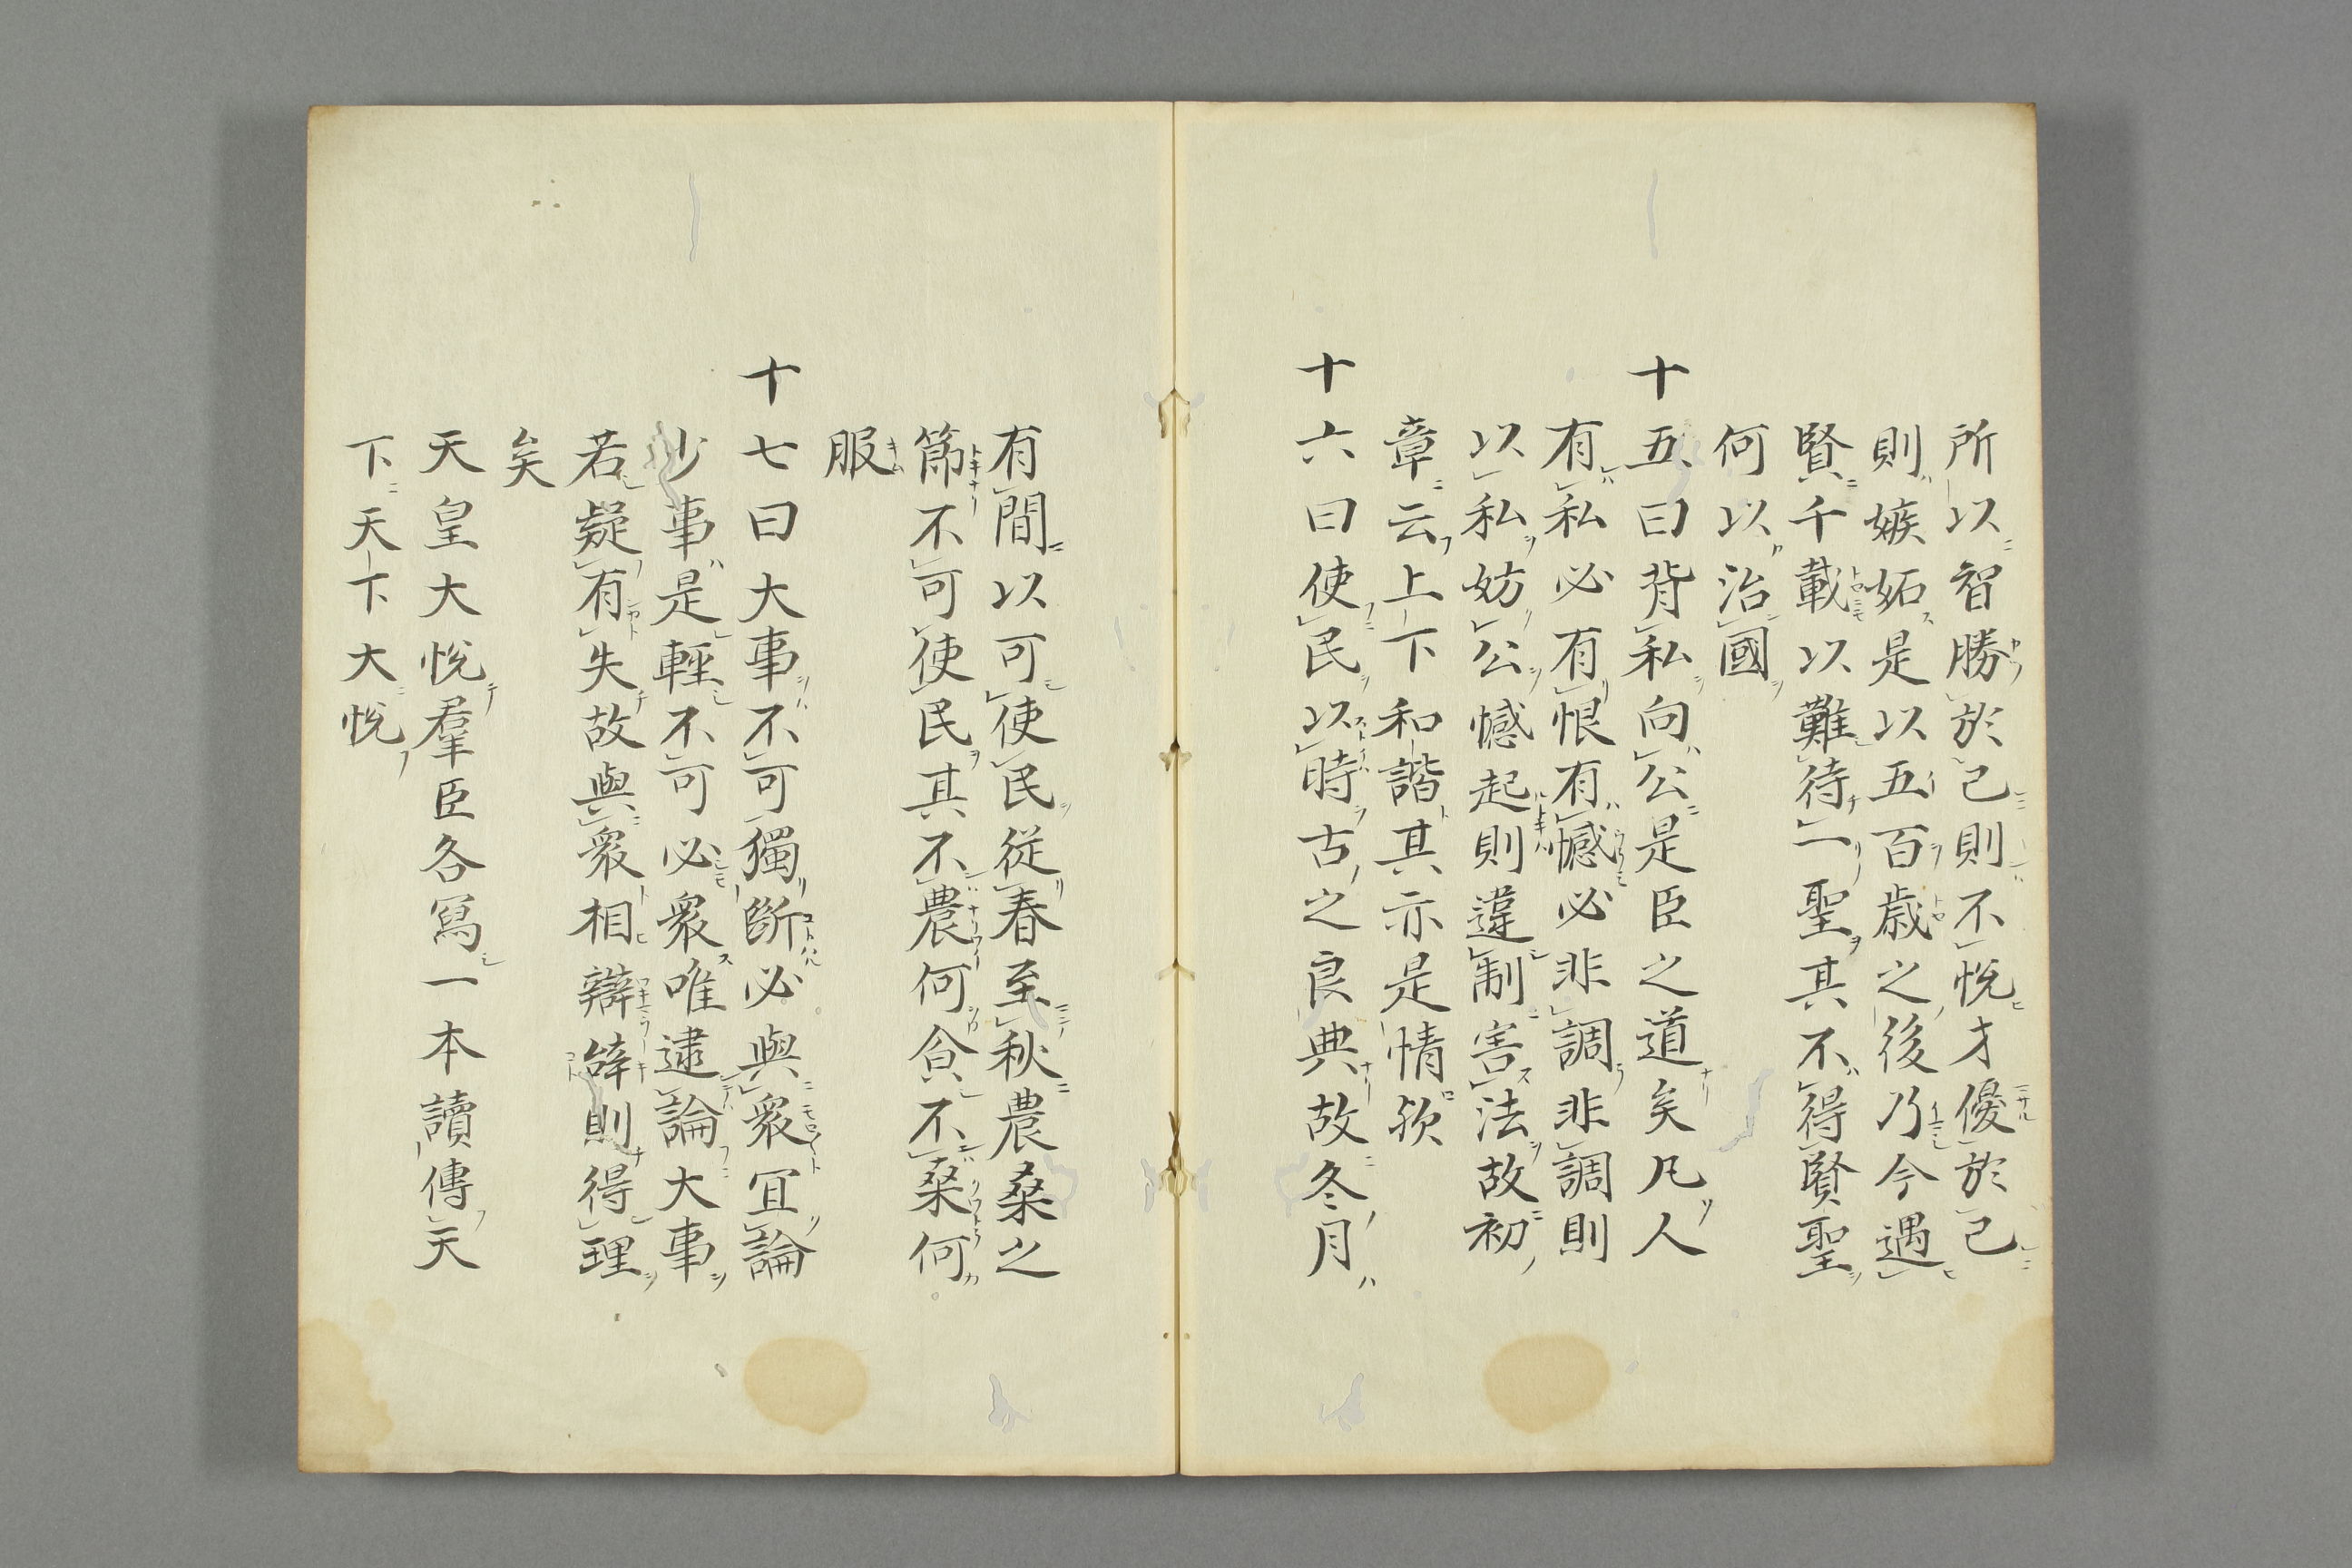 所以智勝於己則不悅才優於己
則嫉妬是以五百歳之後乃今遇
賢千載以難待一聖其不得賢聖
何以治國
十五曰背私向公是臣之道矣凡人
有私必有恨有憾必非調非調則
以私妨公憾起則違制害法故初
章云上下和諧其亦是情欤
十六曰使民以時古之良典故冬月
有間以可使民從春至秋農桒之
節不可使民其不農何食不桒何
服
十七曰大事不可獨断必與衆冝論
少事是輕不可必衆唯逮論大事
若疑有失故與衆相辯辞則得理
矣
天皇大悅羣臣各冩一本讀傳天
下天下大悅